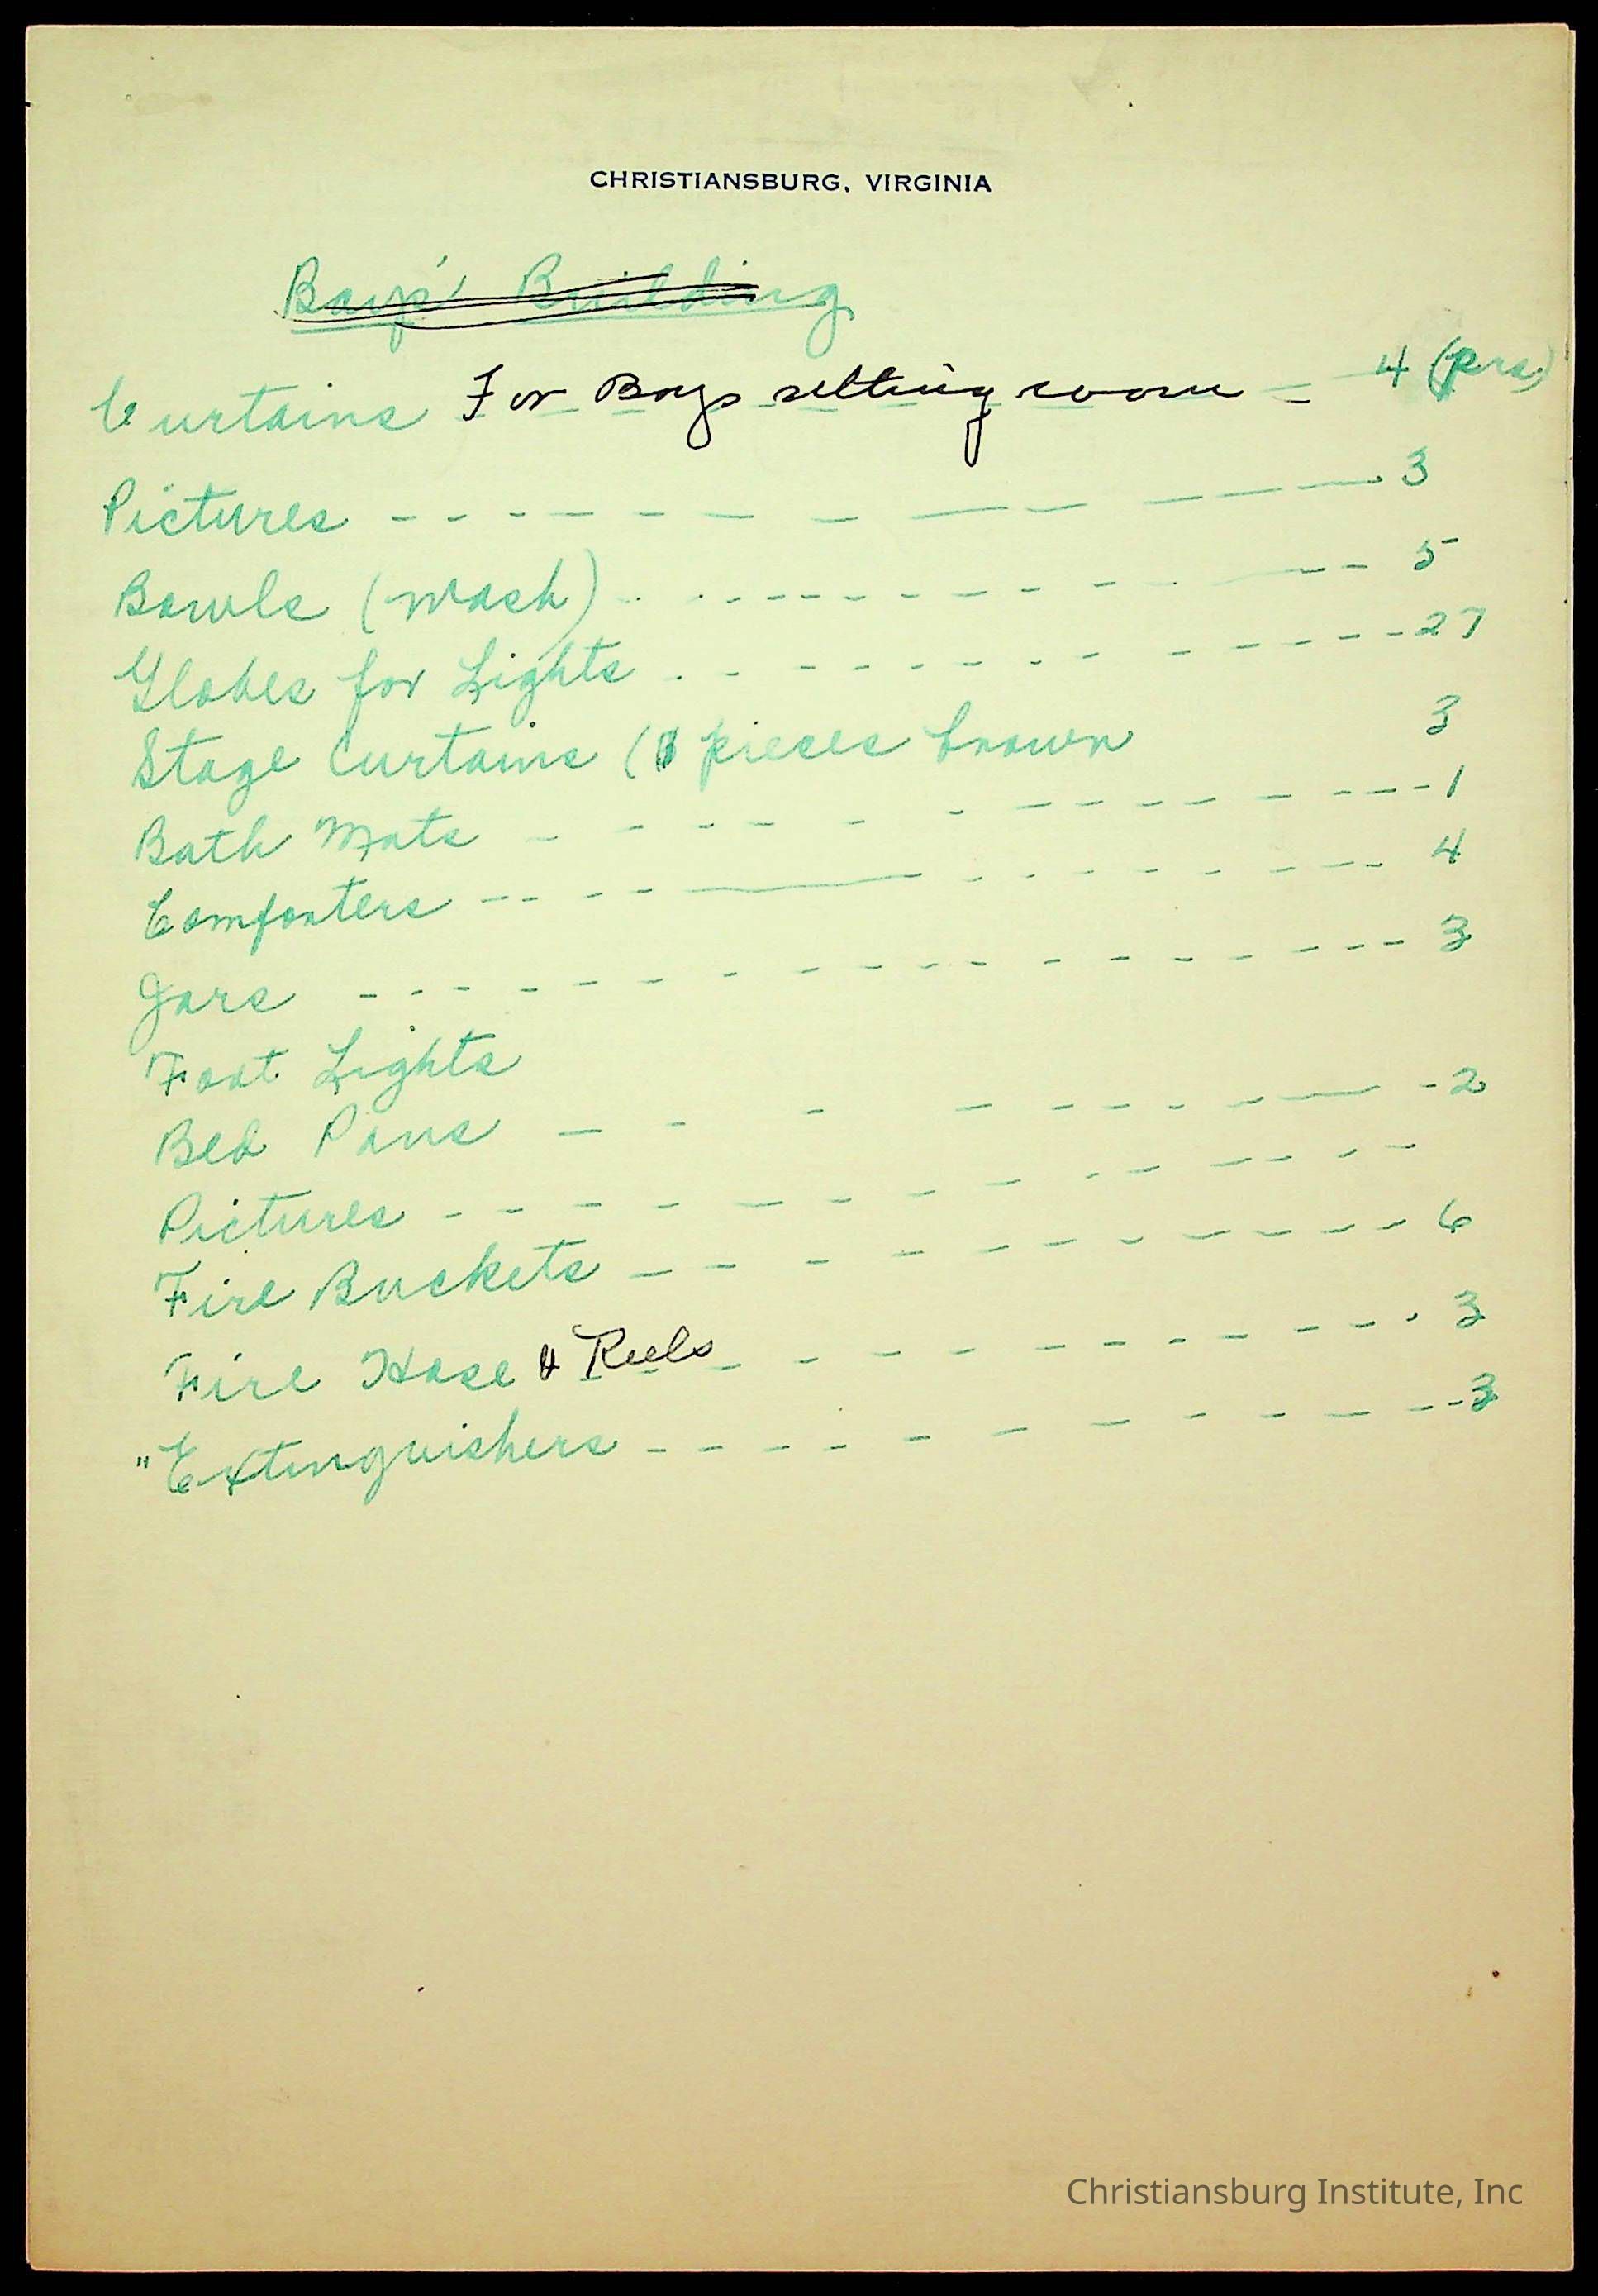 CHRISTIANSBURG, VIRGINIA
Boys' Building
Curtains For Boys setting room - - 4 (prs.)
Pictures - - - - - - - - - - - - 3
Bowls (Wash) - - - - - - - - - - - 5
Globes for Lights - - - - - - - - - - - 27
Stage Curtains ( pieces brown 3
Bath Mats - - - - - - - - - - - - 1
Comforters - - - - - - - - - - - - 4
Jars - - - - - - - - - - - - - - - 3
Foot Lights
Bed Pans - - - - - - - - - - 2
Pictures - - - - - - - - - - - - - -
Fire Buckets - - - - - - - - - - - - 6
Fire Hose & Reels - - - - - - - - - - 3
" Extinguishers - - - - - - - - - - - - 3
Christiansburg Institute, Inc